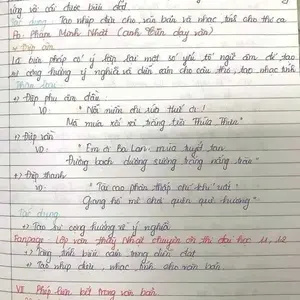 ứng và cái được biểu đạt.
Tác dụng: Tạo nhịp điệu cho văn bản và nhạc tính cho thơ ca
Fb: Phạm Minh Nhật (anh Tiến dạy văn)
* Điệp cấu
Là biện pháp có ý lặp lại một số yếu tố ngữ âm để tạo
sự cộng hưởng ý nghĩa và diễn cảm cho câu thơ, tạo nhạc tính
Phân loại
+) Điệp phụ âm đầu
VD: "Nỗi niềm chi rứa Huế ơi!
Mà mưa xối xả trắng trời Thừa Thiên"
+) Điệp vần
VD: "Em ơi Ba Lan mùa tuyết tan
Đường bạch dương sương trắng nắng tràn"
+) Điệp thanh
VD: "Tài cao phận thấp chí khí uất
Giang hồ mê chơi quên quê hương"
Tác dụng
+) Tạo sự cộng hưởng về ý nghĩa
Fanpage: Lớp văn thầy Nhật chuyên ôn thi đại học
+) Tăng tính biểu cảm trong diễn đạt
+) Tạo nhịp điệu, nhạc tính cho văn bản
VII Phép liên kết trong văn bản